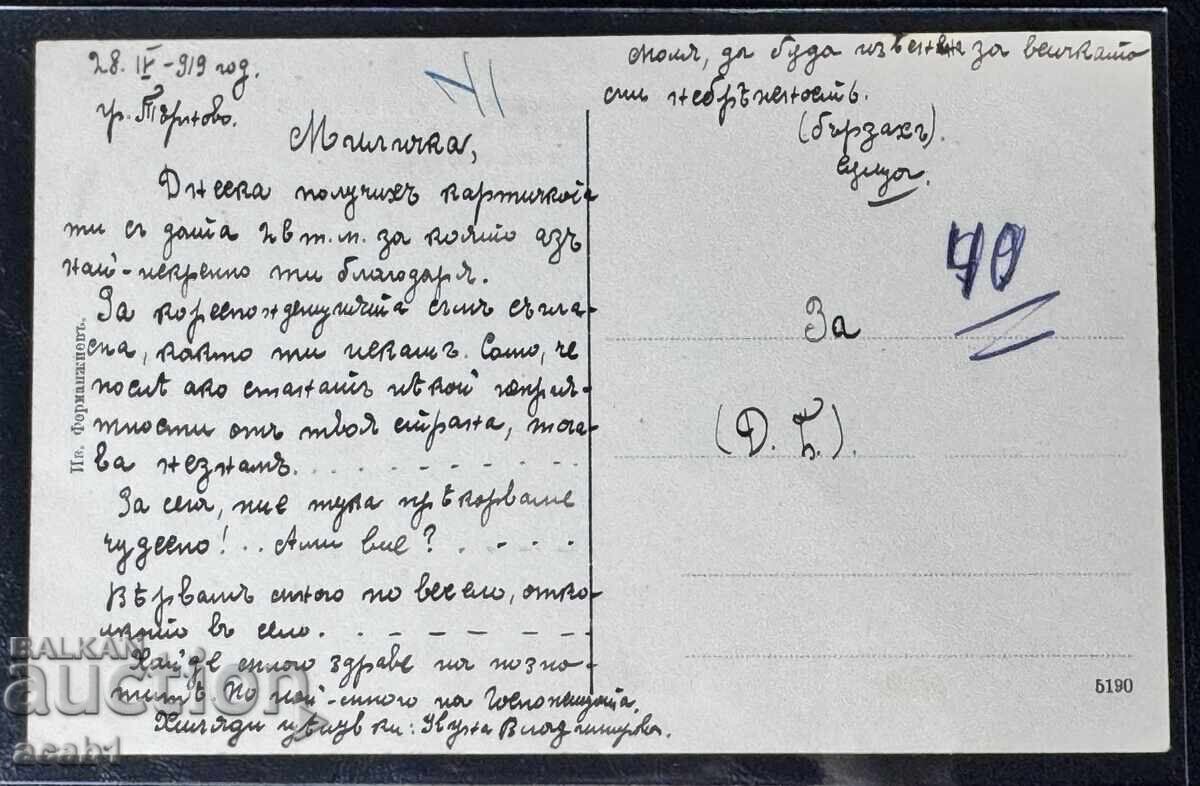 28. IV - 919 год.
гр. Търново.
Миличка,
Днеска получихъ картичкойа
ти съ дата 24 т.м. за която азъ
най-искренно ти благодаря.
За кореспонденцията съмъ съгла-
сна, както ти искашъ. Само, че
послѣ ако станатъ нѣкой
тности отъ твоя страна, тога-
ва незнамъ. . . . . . . . . . .
За сега, ние тука прѣкарваме
чудесно! . . Ами вие? . - . - -
Вѣрвамъ много по весело, откол-
кото въ село. . - - - - - -
Хайде много здраве на позна-
титѣ. Но най-много на Госпожицата.
Хиляди цѣлувки: Владимирова.
моля, да бѫда извинена за всичката
си небрѣжность.
(бързахъ).
Същата.
40
За
(Д. Б.)
Ив. Ферманжиевъ.
5190
BALKAN
auction
acab1